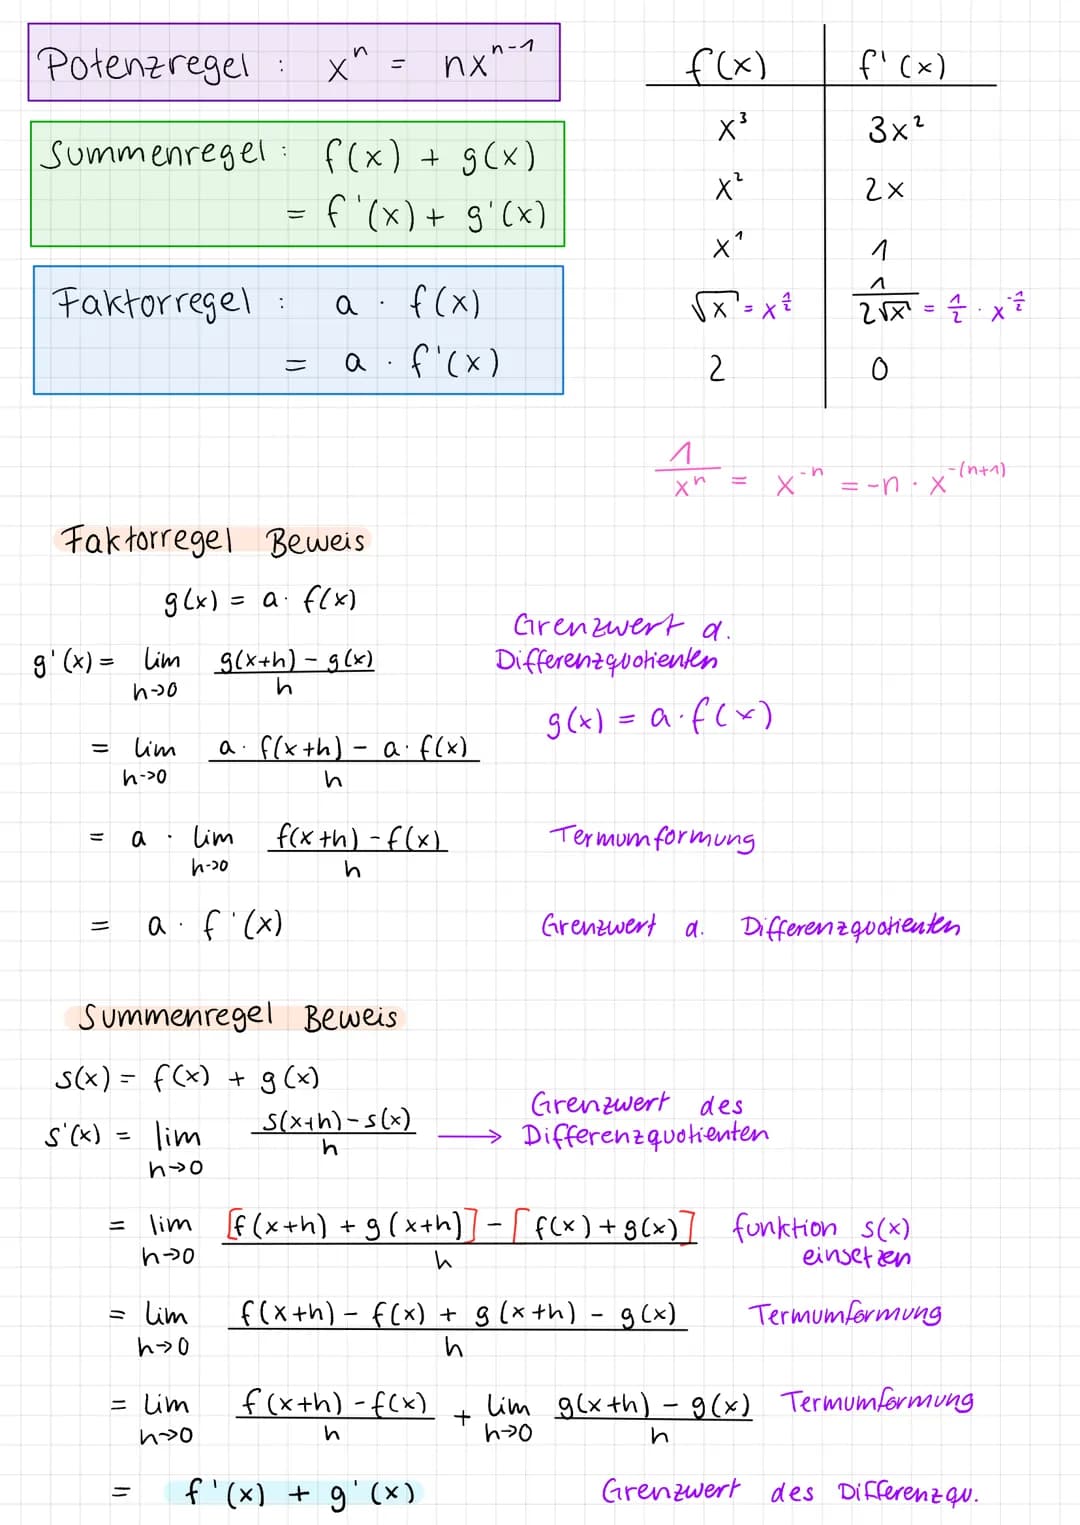 Potenzregel : xⁿ = nxⁿ⁻¹
Summenregel : f(x) + g(x)
= f'(x) + g'(x)
Faktorregel : a · f(x)
= a · f'(x)
f(x) f'(x)
x³ 3x²
x² 2x
x¹ 1
√x = x^(1/2) 1/(2√x) = 1/2 · x^(-1/2)
2 0
1/xⁿ = x⁻ⁿ = -n · x^-(n+1)
Faktorregel Beweis
g(x) = a · f(x)
Grenzwert d.
Differenzquotienten
g'(x) = lim h->0 (g(x+h) - g(x))/h
g(x) = a · f(x)
= lim h->0 (a · f(x+h) - a · f(x))/h
= a · lim h->0 (f(x+h) - f(x))/h Termumformung
= a · f'(x) Grenzwert d. Differenzquotienten
Summenregel Beweis
s(x) = f(x) + g(x)
s'(x) = lim h→0 (s(x+h) - s(x))/h → Grenzwert des
Differenzquotienten
= lim h→0 ([f(x+h) + g(x+h)] - [f(x) + g(x)])/h funktion s(x)
einsetzen
= lim h→0 (f(x+h) - f(x) + g(x+h) - g(x))/h Termumformung
= lim h→0 (f(x+h) - f(x))/h + lim h→0 (g(x+h) - g(x))/h Termumformung
= f'(x) + g'(x) Grenzwert des Differenzqu.